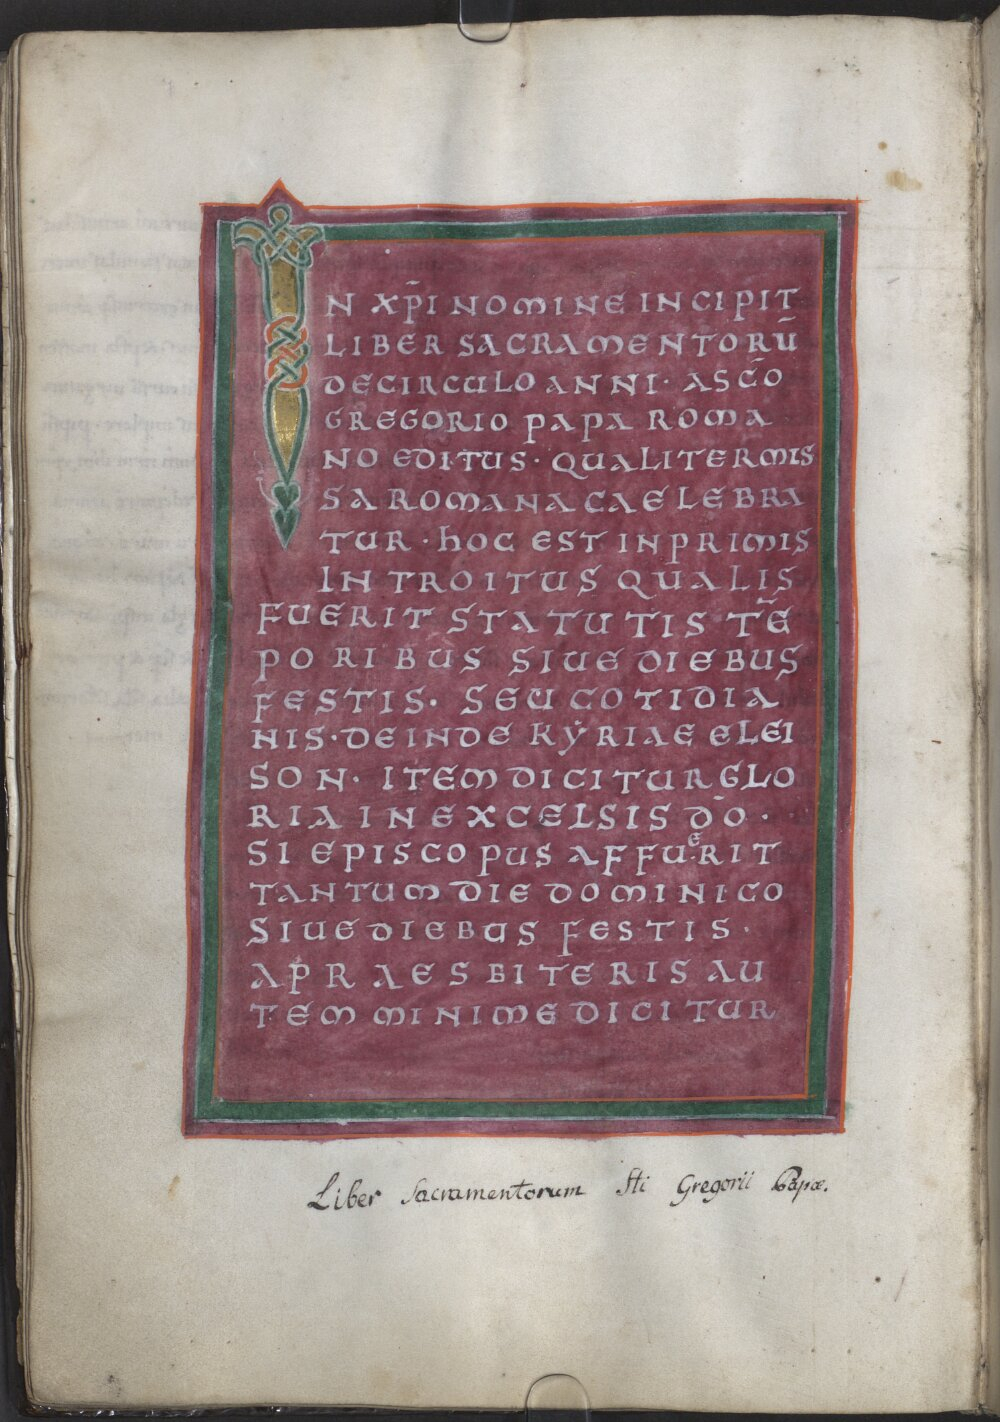 IN XP̄I NOMINE INCIPIT
LIBER SACRAMENTORŪ
DECIRCULO ANNI · ASC̄O
GREGORIO PAPA ROMA
NO EDITUS · QUALITERMIS
SA ROMANA CAELEBRA
TUR · hOC EST INPRIMIS
INTROITUS QUALIS
FUERIT STATUTIS TĒ
PORIBUS SIUE DIEBUS
FESTIS · SEU COTIDIA
NIS · DEINDE KẎRIAE ELEI
SON · ITEM DICITUR GLO
RIA IN EXCELSIS D̄O ·
SI EPISCOPUS AFFUERIT
TANTUM DIE DOMINICO
SIUE DIEBUS FESTIS ·
A PRAESBITERIS AU
TEM MINIME DICITUR
Liber Sacramentorum Sti Gregorii Papæ.